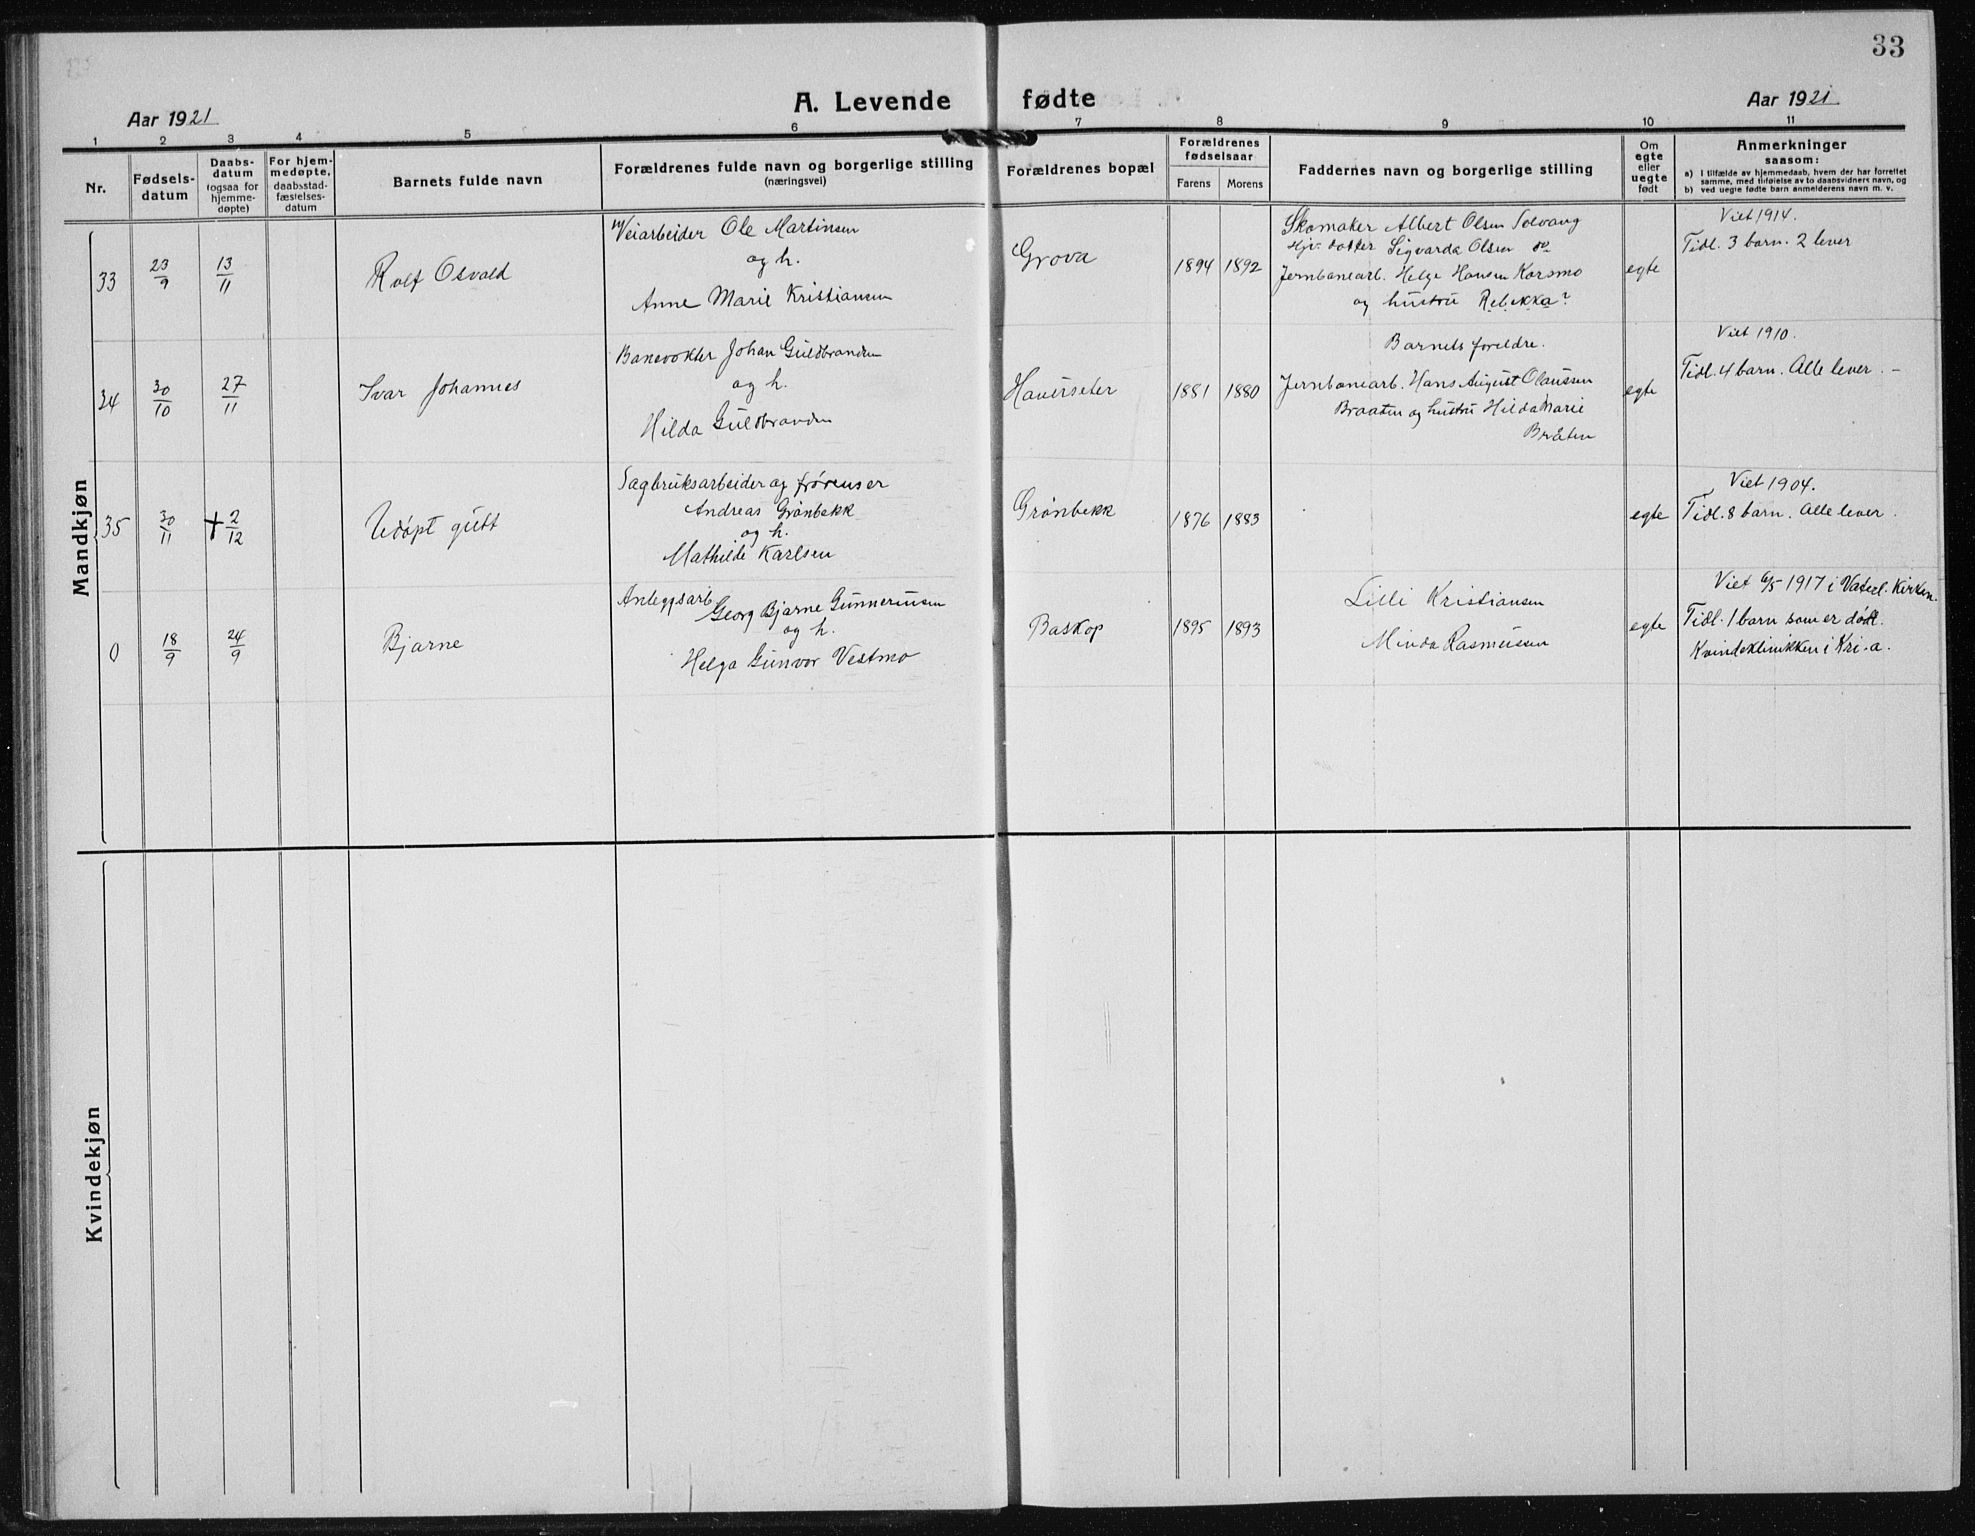 33
Aar 1921
A. Levende fødte
Aar 1921
1 2 3 4 5 6 7 8 9 10 11
Nr.
Fødsels-
datum
Daabs-
datum
(ogsaa for
hjemme-
døpte)
For hjem-
medøpte,
daabsstad-
fæstelses-
datum
Barnets fulde navn
Forældrenes fulde navn og borgerlige stilling
(næringsvei)
Forældrenes bopæl
Forældrenes
fødselsaar
Farens Morens
Faddernes navn og borgerlige stilling
Om
egte
eller
uegte
født
Anmerkninger
saasom:
a) I tilfælde av hjemmedaab, hvem der har forrettet
samme, med tilføielse av to daabsvidners navn, og
b) ved uegte fødte barn anmelderens navn m. v.
Mandkjøn
33
23/9
13/11
Rolf Osvald
Veiarbeider Ole Martinsen
og h.
Anne Marie Kristiansen
Grova
1894 1892
Skomaker Albert Olsen Solvang
Hj. dotter Sigvarda Olsen
Jernbanearb. Helge Hansen Korsmo
og hustru Rebekka?
egte
Viet 1914.
Tidl. 3 barn. 2 lever
34
30/10
27/11
Ivar Johannes
Banevokter Johan Guldbrandsen
og h.
Hilda Guldbrandsen
Hauerseter
1881 1880
Barnets foreldre.
Jernbanearb. Hans August Olaussen
Braaten og hustru Hilda Marie
Bråten
egte
Viet 1910.
Tidl. 4 barn. Alle lever. -
35
30/11
+ 2/12
Udøpt gutt
Sagbruksarbeider og
Andreas Grønbekk
og h.
Mathilde Karlsen
Grønbekk
1876 1883
egte
Viet 1904.
Tidl. 8 barn. Alle lever.
0
18/9
24/9
Bjarne
Anleggsarb. Georg Bjarne Gunneriusen
og h.
Helga Gunvor Vestmo
Baskop
1895 1893
Lilli Kristiansen
Minda Rasmussen
egte
Viet 6/5 1917 i Vaterl. Kirken.
Tidl. 1 barn som er død.
Kvindeklinikken i Kri.a.
Kvindekjøn